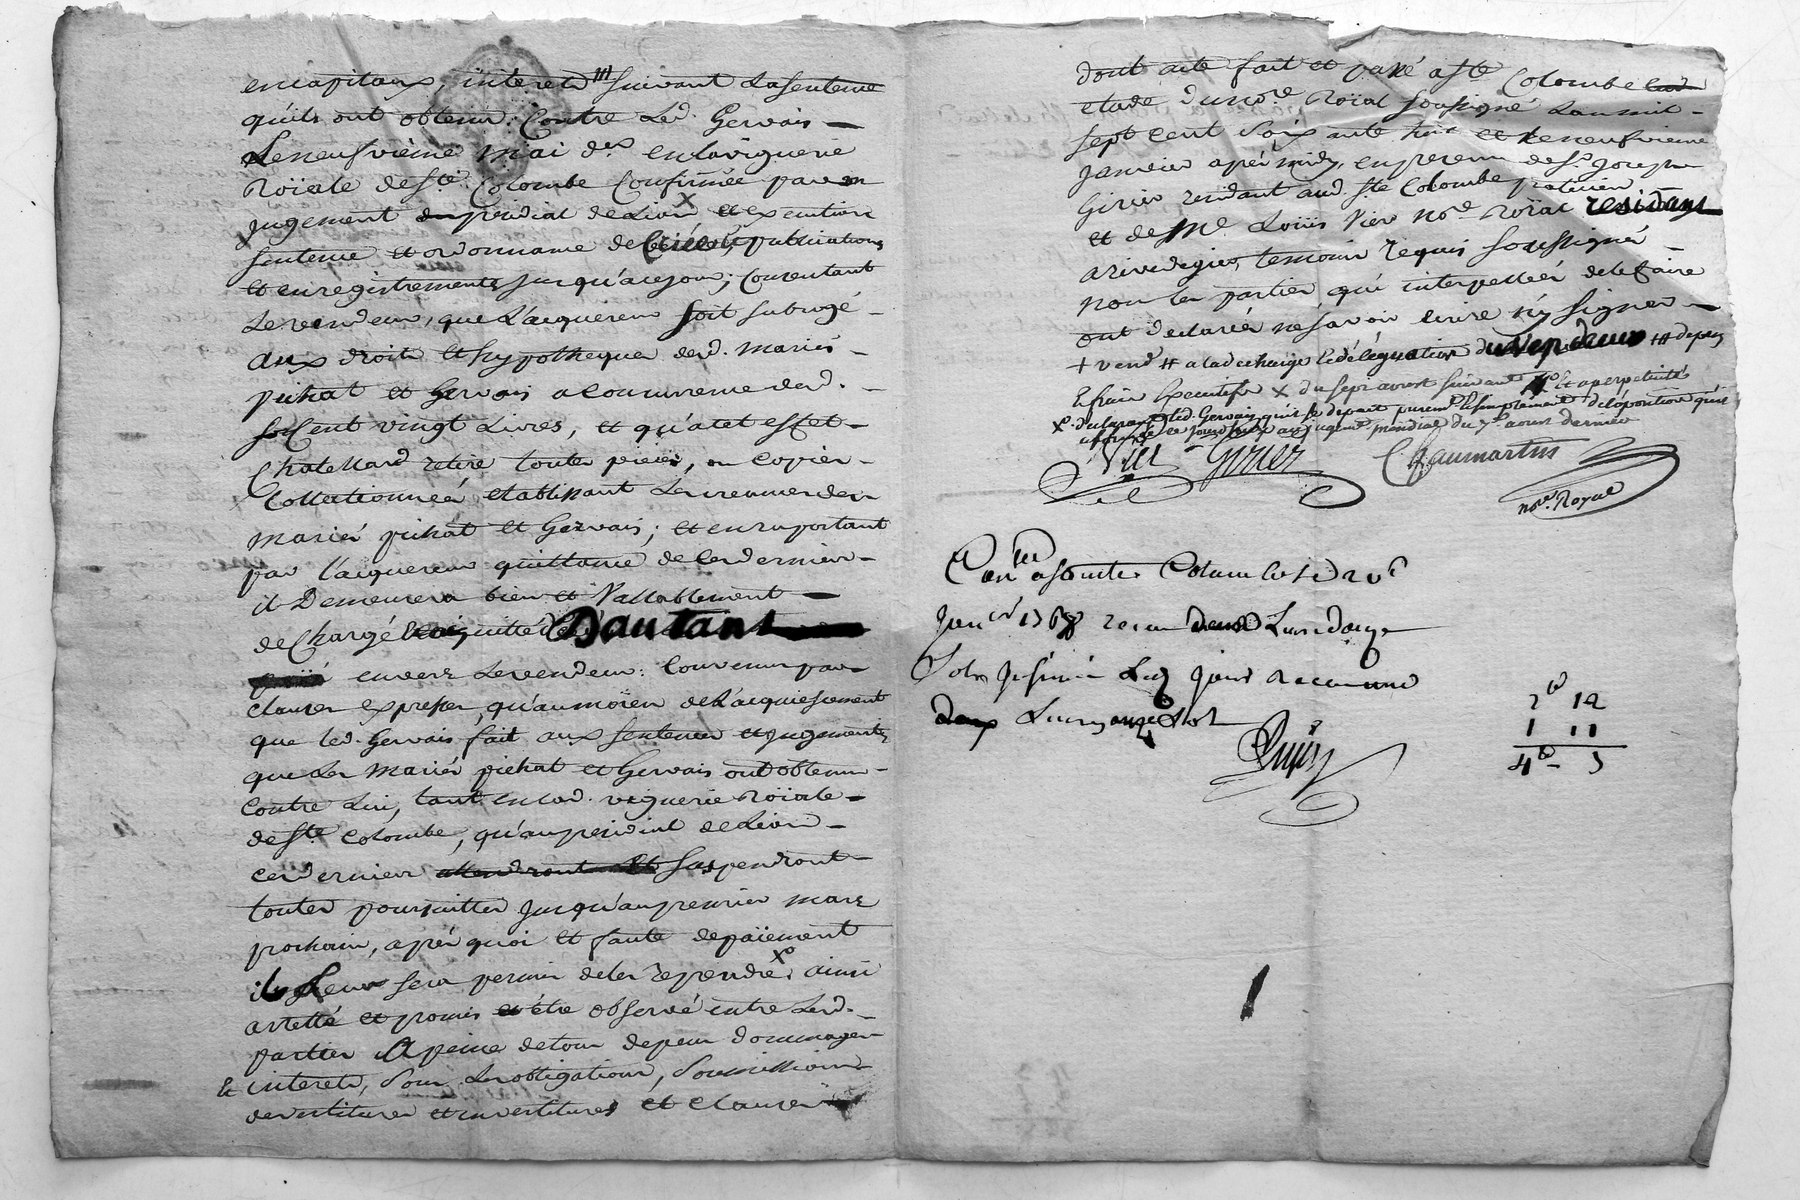 en capitaux, interetd /// suivant la sentence
qu'ils ont obtenu: Contre led. Gervais —
Le neufvième mai der. en la viguerie
Roïale de Ste. Colombe Confirmée par un
Jugement presidial de Lion X et execution
sentence et ordonnance de publications
et enregistrements jusqu'a ce jour; Consentant
Le vendeur, que L'acquereur soit subrogé —
aux droits et hypotheque desd. mariés —
pichat et Gervais a Concurrence desd. —
Cent vingt Livres, et qu'a cet effet —
Chatellard retire toutes pieces, ou copies —
Collectionnées etablissant les creances des
mariés pichat et Gervais; et en raportant
par l'acquereur quittance de ces derniers —
il Demeurera bien et Vallablement —
deChargé D'autant
envers le vendeur: Convenu par
clauses expresses, qu'au moïen de L'acquiescement
que led. Gervais fait aux sentences et jugements
que les mariés pichat et Gervais ont obtenu —
contre Lui, tant en lad. viguerie Roïale —
de Ste. Colombe, qu'au presidial de Lion —
ces derniers suspendront
toutes poursuittes jusqu'au premier mars
prochain, aprés quoi et faute de paiement
il Leur sera permis de les reprendre Xo ainsi
arretté et promis etre observé entre lesd. —
parties A peine de tous depens dommages
et interetd, sous les obligations, soumissions
devestitures et investitures et clauses
dont acte fait et passé a Ste Colombe
etude du nore. Roïal soussigné L'an mil —
sept cent soixante huit et le neufvieme
Janvier aprés midy, en presence de Sr. Joseph
Girier residant aud. Ste Colombe praticien
et de Me. Loüis Vier nore. Roïal residant
a rivedegier, temoins requis soussignés —
non les parties qui interpellées de le faire
ont declarées ne savoir ecrire ny signer —
+ vend # a la decharge et délégation du vendeur /// depens
et frais Executifs X du sept aoust suivant Xo Et a perpetuité
Xo. declarant led. Gervais qu'il se depart purement et simplement de l'oposition qu'il
a formé ce jourd'huy au jugemt. presidial du 7e aoust dernier
Vier Girier Chaumartin
nore. Royal
Conlé a Sainte Colombe le 20e
Janier 1768 recu deux Livres douze
sols
deux Livres onze
2tt 12
1 11
4tt 3